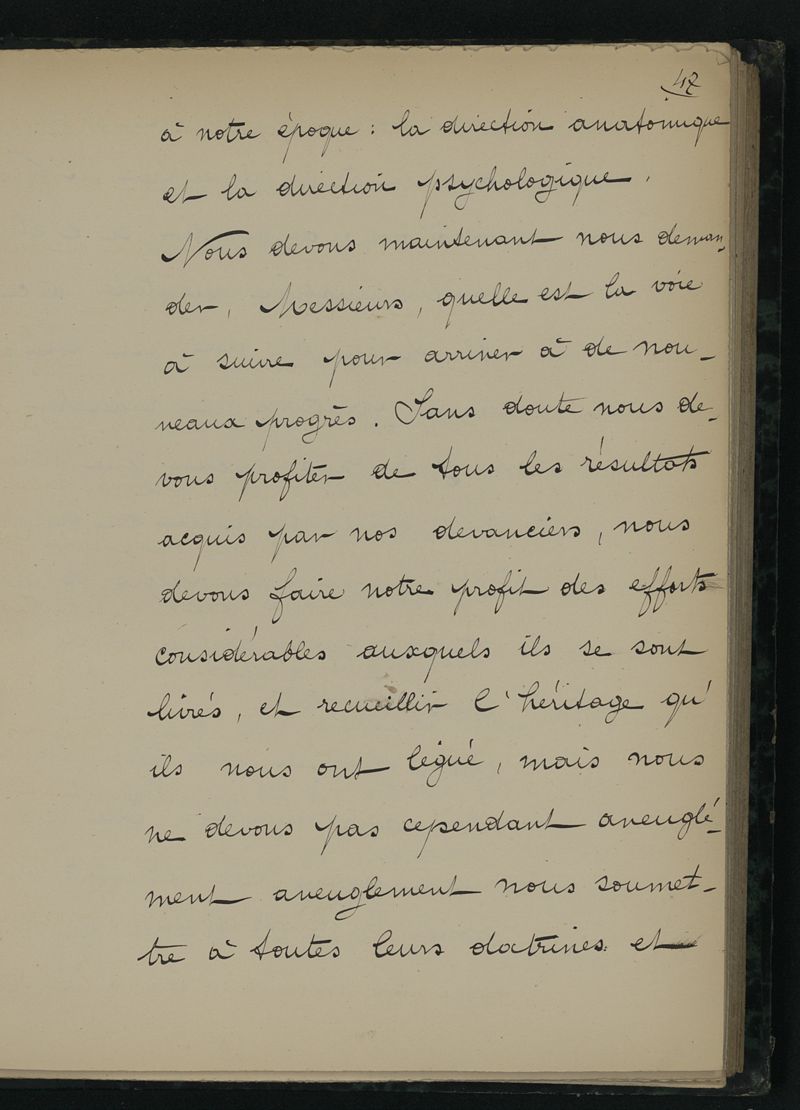 47
à notre époque : la direction anatomique
et la direction psychologique.
Nous devons maintenant nous deman-
der, Messieurs, quelle est la voie
à suivre pour arriver à de nou-
veaux progrès. Sans doute nous de-
vons profiter de tous les résultats
acquis par nos devanciers, nous
devons faire notre profit des efforts
considérables auxquels ils se sont
livrés, et recueillir l'héritage qu'
ils nous ont légué, mais nous
ne devons pas cependant aveuglé-
ment aveuglement nous soumet-
tre à toutes leurs doctrines et